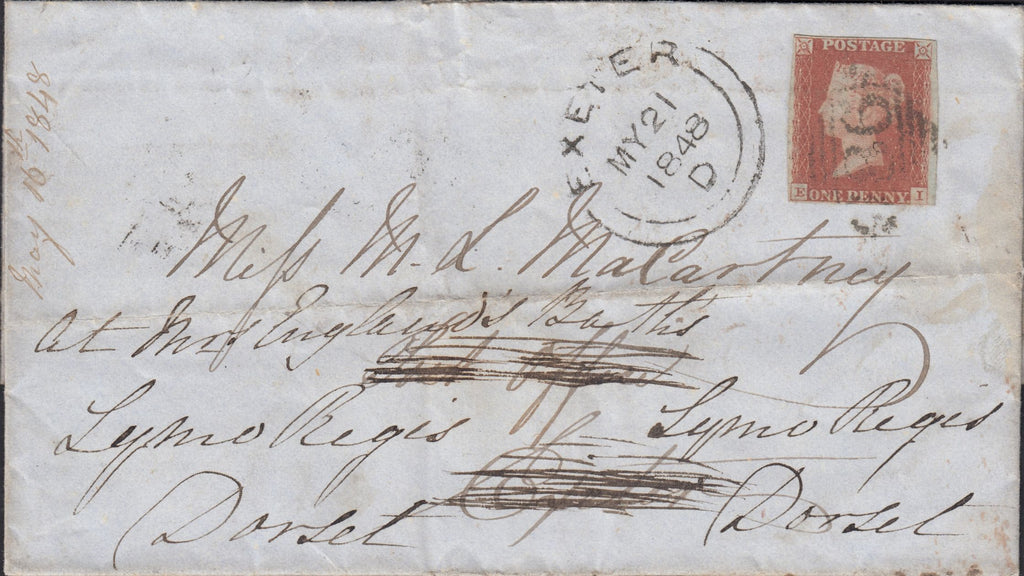 May 16th 1848
EXETER
MY 21
1848
D
POSTAGE
E ONE PENNY I
Miss M. L. MaCartney
at Mrs England's Baths
Lyme Regis Lyme Regis
Dorset Dorset